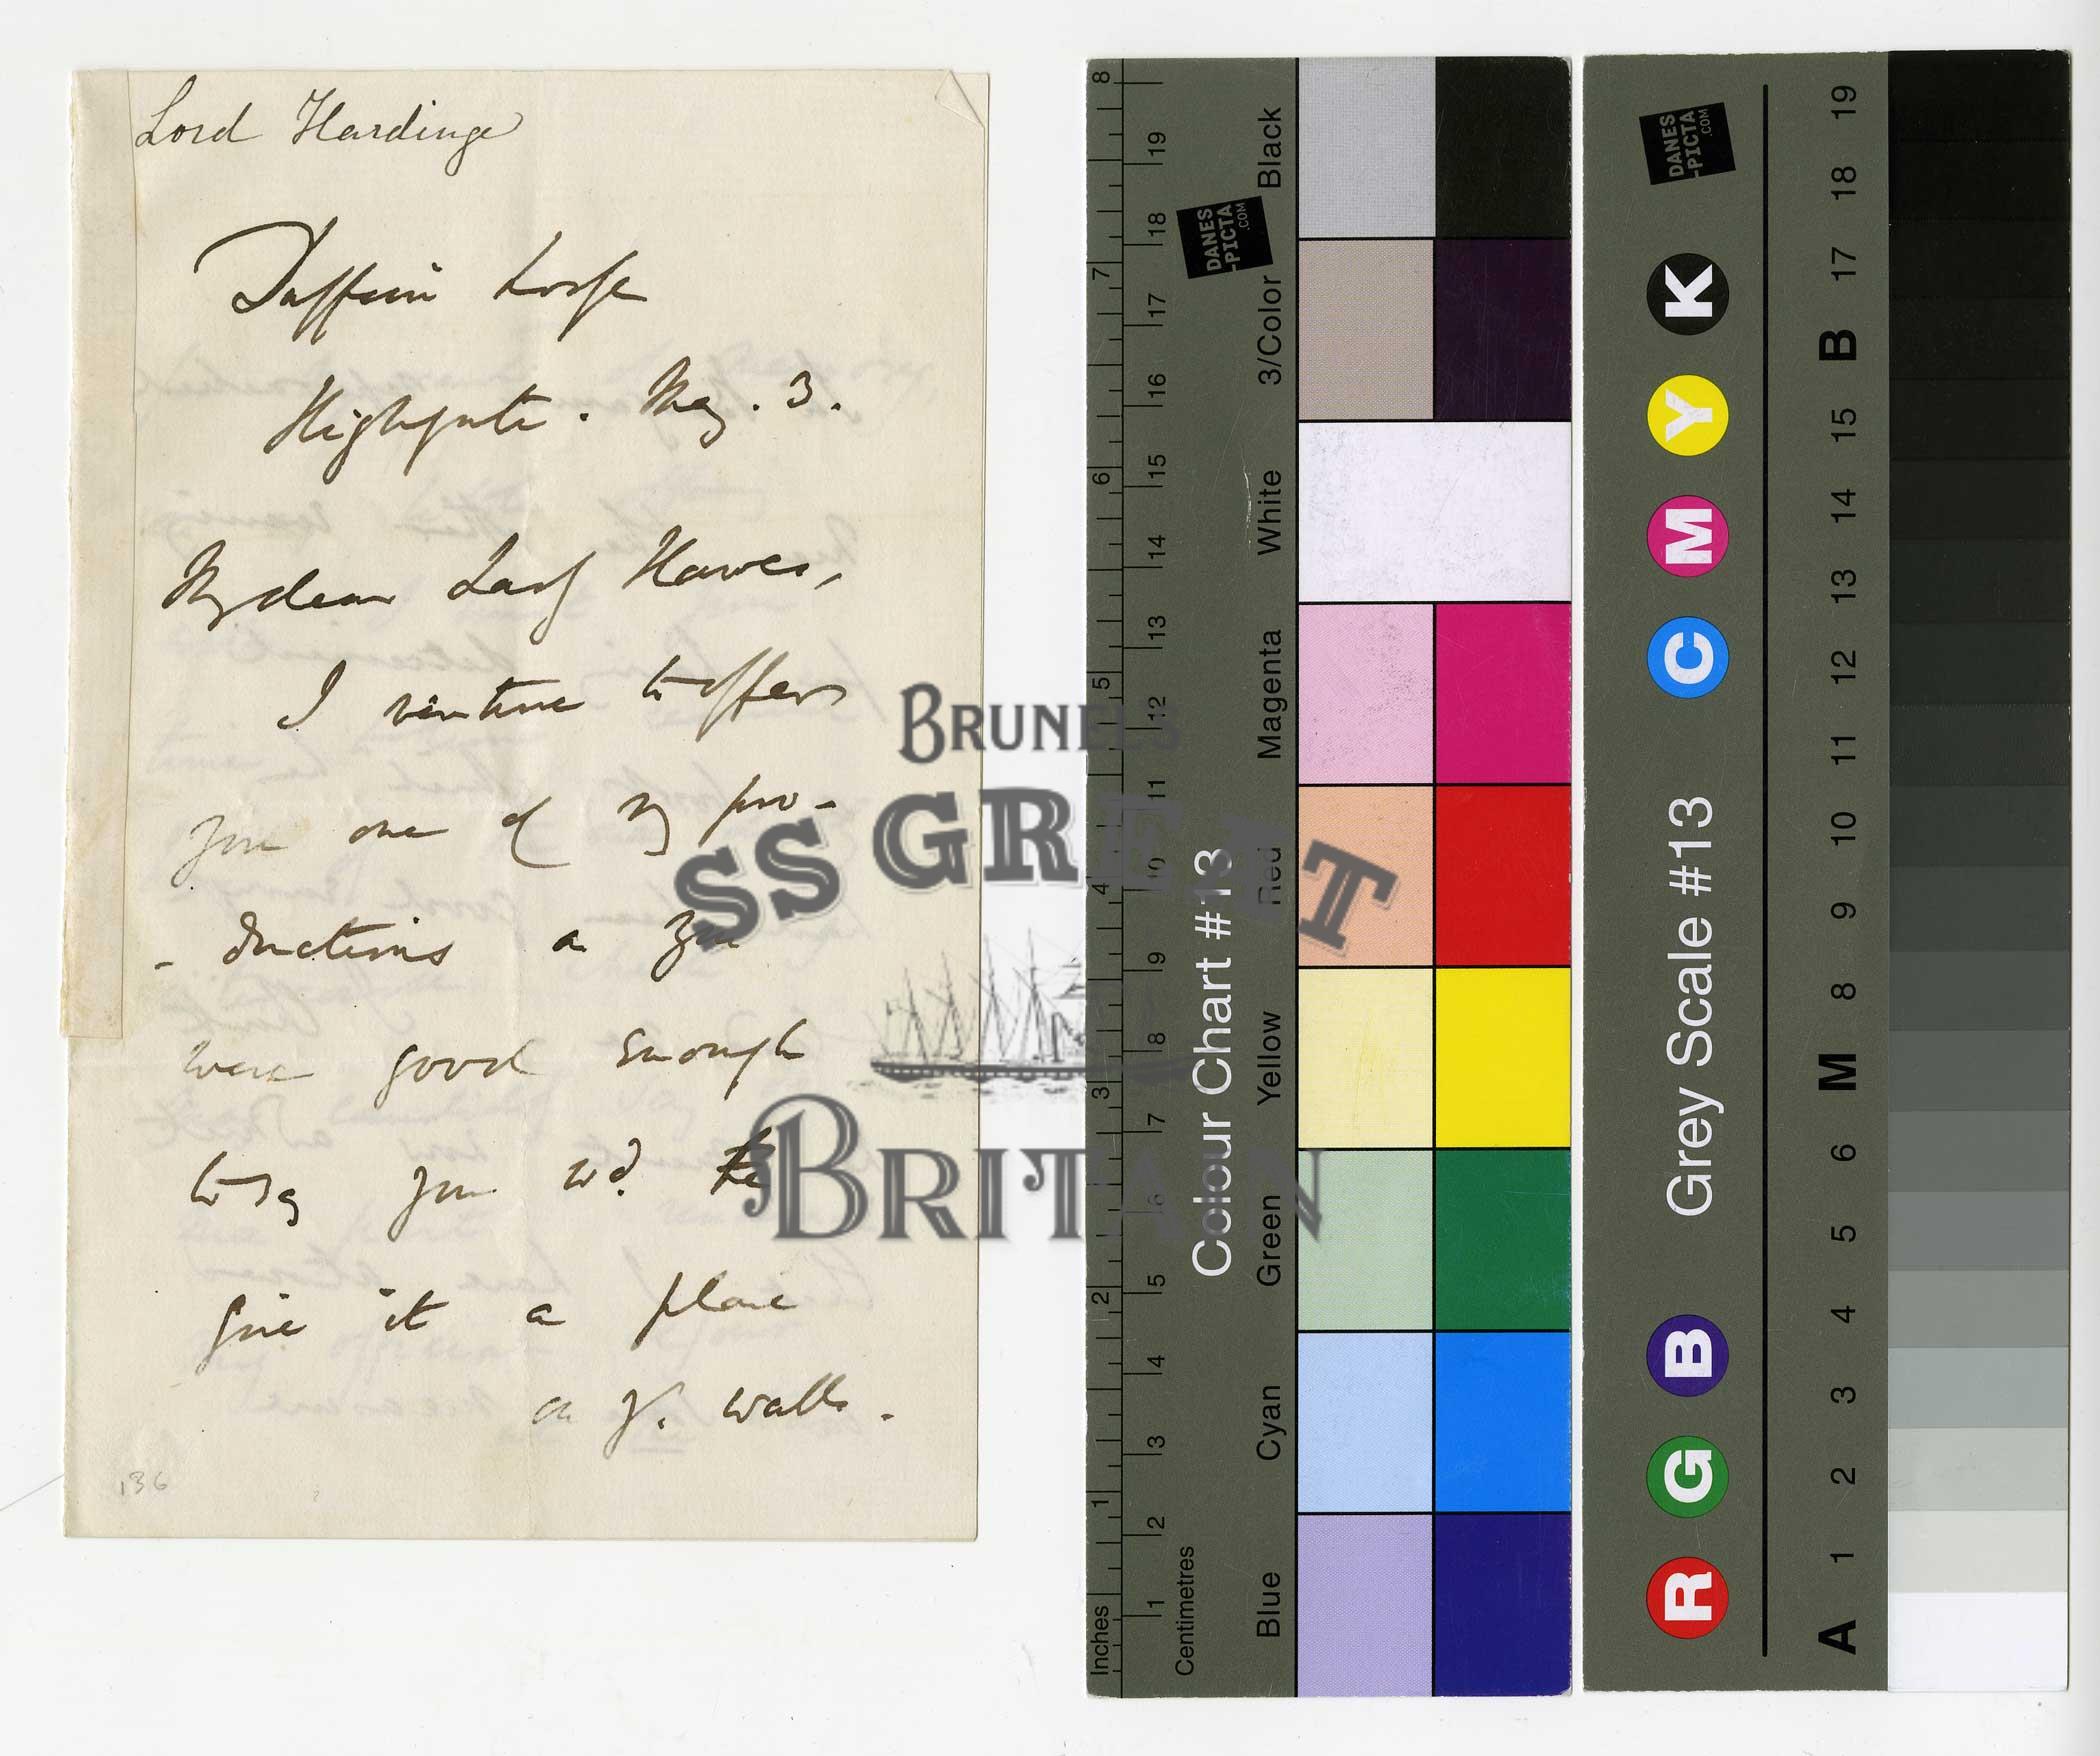 Lord Hardinge
Dufferin Lodge
Highgate. May. 3.
My dear Lady Hawes,
I venture to offer
you one of my pro-
-ductions as you
were good enough
to say you wd.
give it a place
on yr. walls.
136
BRUNEL'S
SS GREAT
BRITAIN
Inches
1 2 3 4 5 6 7 8
Centimetres
1 2 3 4 5 6 7 8 9 10 11 12 13 14 15 16 17 18 19
Colour Chart #13
DANES
-PICTA
.COM
Blue Cyan Green Yellow Red Magenta White 3/Color Black
R G B
Grey Scale #13
C M Y K
DANES
-PICTA
.COM
A 1 2 3 4 5 6 M 8 9 10 11 12 13 14 15 B 17 18 19